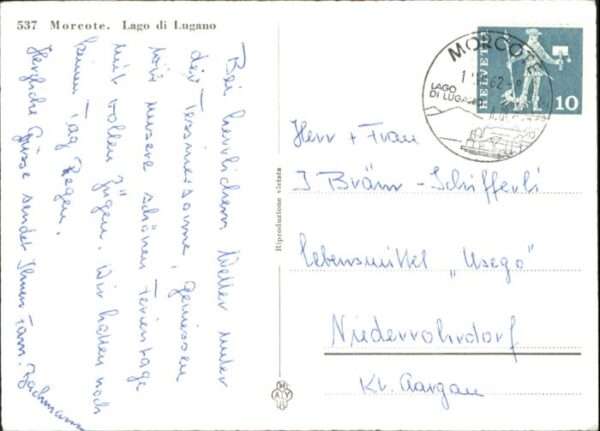 537 Morcote. Lago di Lugano
Bei herrlichem Wetter unter
der Tessinersonne, geniessen
wir unsere schönen Ferientage
mit vollen Zügen. Wir hatten noch
keinen Tag Regen.
Herzliche Grüsse sendet Ihnen Fam. Bachmann
Riproduzione vietata
HELVETIA
10
MORCOTE
LAGO
DI LUGANO
Herr + Frau
J Bräm-Schifferli
Lebensmittel „Usego"
Niederrohrdorf
Kt. Aargau